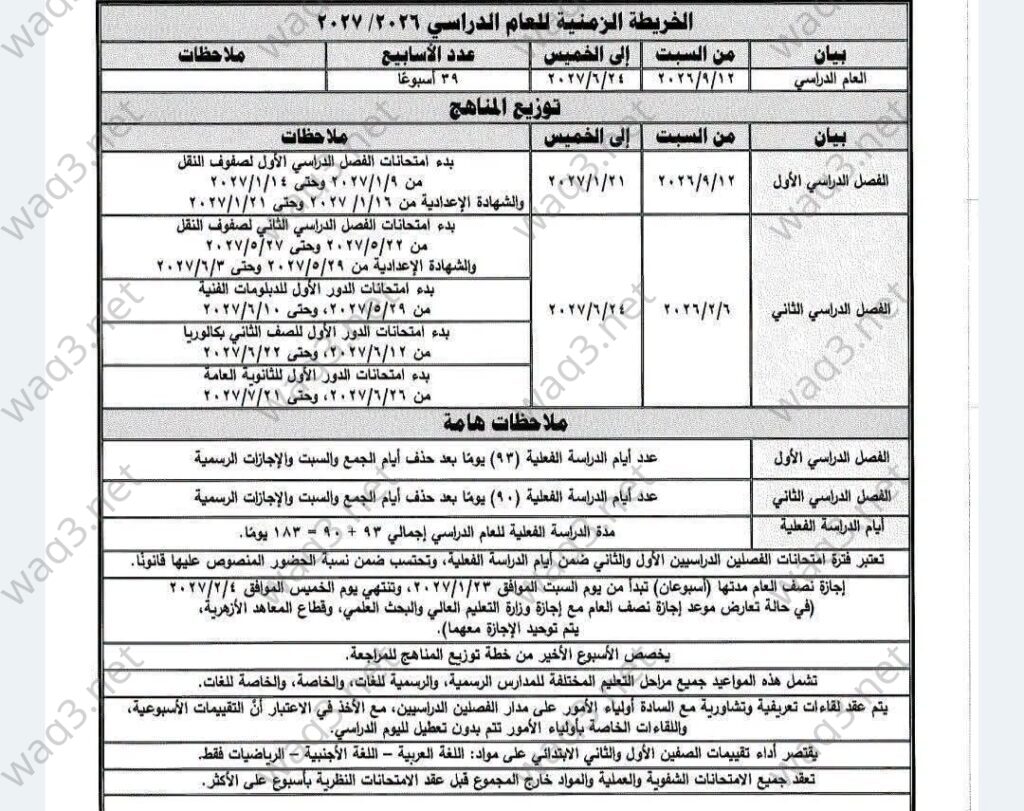 الخريطة الزمنية للعام الدراسي ٢٠٢٦/ ٢٠٢٧
بيان من السبت إلى الخميس عدد الأسابيع ملاحظات
العام الدراسي ٢٠٢٦/٩/١٢ ٢٠٢٧/٦/٢٤ ٣٩ أسبوعًا
توزيع المناهج
بيان من السبت إلى الخميس ملاحظات
الفصل الدراسي الأول ٢٠٢٦/٩/١٢ ٢٠٢٧/١/٢١
بدء امتحانات الفصل الدراسي الأول لصفوف النقل
من ٢٠٢٧/١/٩ وحتى ٢٠٢٧/١/١٤
والشهادة الإعدادية من ٢٠٢٧/١/١٦ وحتى ٢٠٢٧/١/٢١
الفصل الدراسي الثاني ٢٠٢٦/٢/٦ ٢٠٢٧/٦/٢٤
بدء امتحانات الفصل الدراسي الثاني لصفوف النقل
من ٢٠٢٧/٥/٢٢ وحتى ٢٠٢٧/٥/٢٧
والشهادة الإعدادية من ٢٠٢٧/٥/٢٩ وحتى ٢٠٢٧/٦/٣
بدء امتحانات الدور الأول للدبلومات الفنية
من ٢٠٢٧/٥/٢٩، وحتى ٢٠٢٧/٦/١٠
بدء امتحانات الدور الأول للصف الثاني بكالوريا
من ٢٠٢٧/٦/١٢، وحتى ٢٠٢٧/٦/٢٢
بدء امتحانات الدور الأول للثانوية العامة
من ٢٠٢٧/٦/٢٦، وحتى ٢٠٢٧/٧/٢١
ملاحظات هامة
الفصل الدراسي الأول عدد أيام الدراسة الفعلية (٩٣) يومًا بعد حذف أيام الجمع والسبت والإجازات الرسمية
الفصل الدراسي الثاني عدد أيام الدراسة الفعلية (٩٠) يومًا بعد حذف أيام الجمع والسبت والإجازات الرسمية
أيام الدراسة الفعلية مدة الدراسة الفعلية للعام الدراسي إجمالي ٩٣ + ٩٠ = ١٨٣ يومًا.
تعتبر فترة امتحانات الفصلين الدراسيين الأول والثاني ضمن أيام الدراسة الفعلية، وتحتسب ضمن نسبة الحضور المنصوص عليها قانونًا.
إجازة نصف العام مدتها (أسبوعان) تبدأ من يوم السبت الموافق ٢٠٢٧/١/٢٣، وتنتهي يوم الخميس الموافق ٢٠٢٧/٢/٤
(في حالة تعارض موعد إجازة نصف العام مع إجازة وزارة التعليم العالي والبحث العلمي، وقطاع المعاهد الأزهرية،
يتم توحيد الإجازة معهما).
يخصص الأسبوع الأخير من خطة توزيع المناهج للمراجعة.
تشمل هذه المواعيد جميع مراحل التعليم المختلفة للمدارس الرسمية، والرسمية للغات، والخاصة، والخاصة للغات.
يتم عقد لقاءات تعريفية وتشاورية مع السادة أولياء الأمور على مدار الفصلين الدراسيين، مع الأخذ في الاعتبار أنَّ التقييمات الأسبوعية،
واللقاءات الخاصة بأولياء الأمور تتم بدون تعطيل لليوم الدراسي.
يقتصر أداء تقييمات الصفين الأول والثاني الابتدائي على مواد: اللغة العربية – اللغة الأجنبية – الرياضيات فقط.
تعقد جميع الامتحانات الشفوية والعملية والمواد خارج المجموع قبل عقد الامتحانات النظرية بأسبوع على الأكثر.
waq3.net